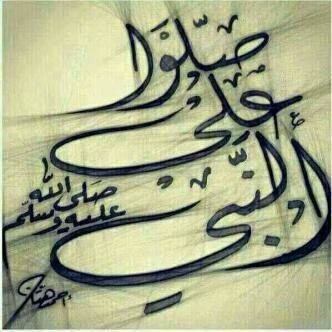 صَلّوا
على
النّبي
صلى الله
عليه وسلم